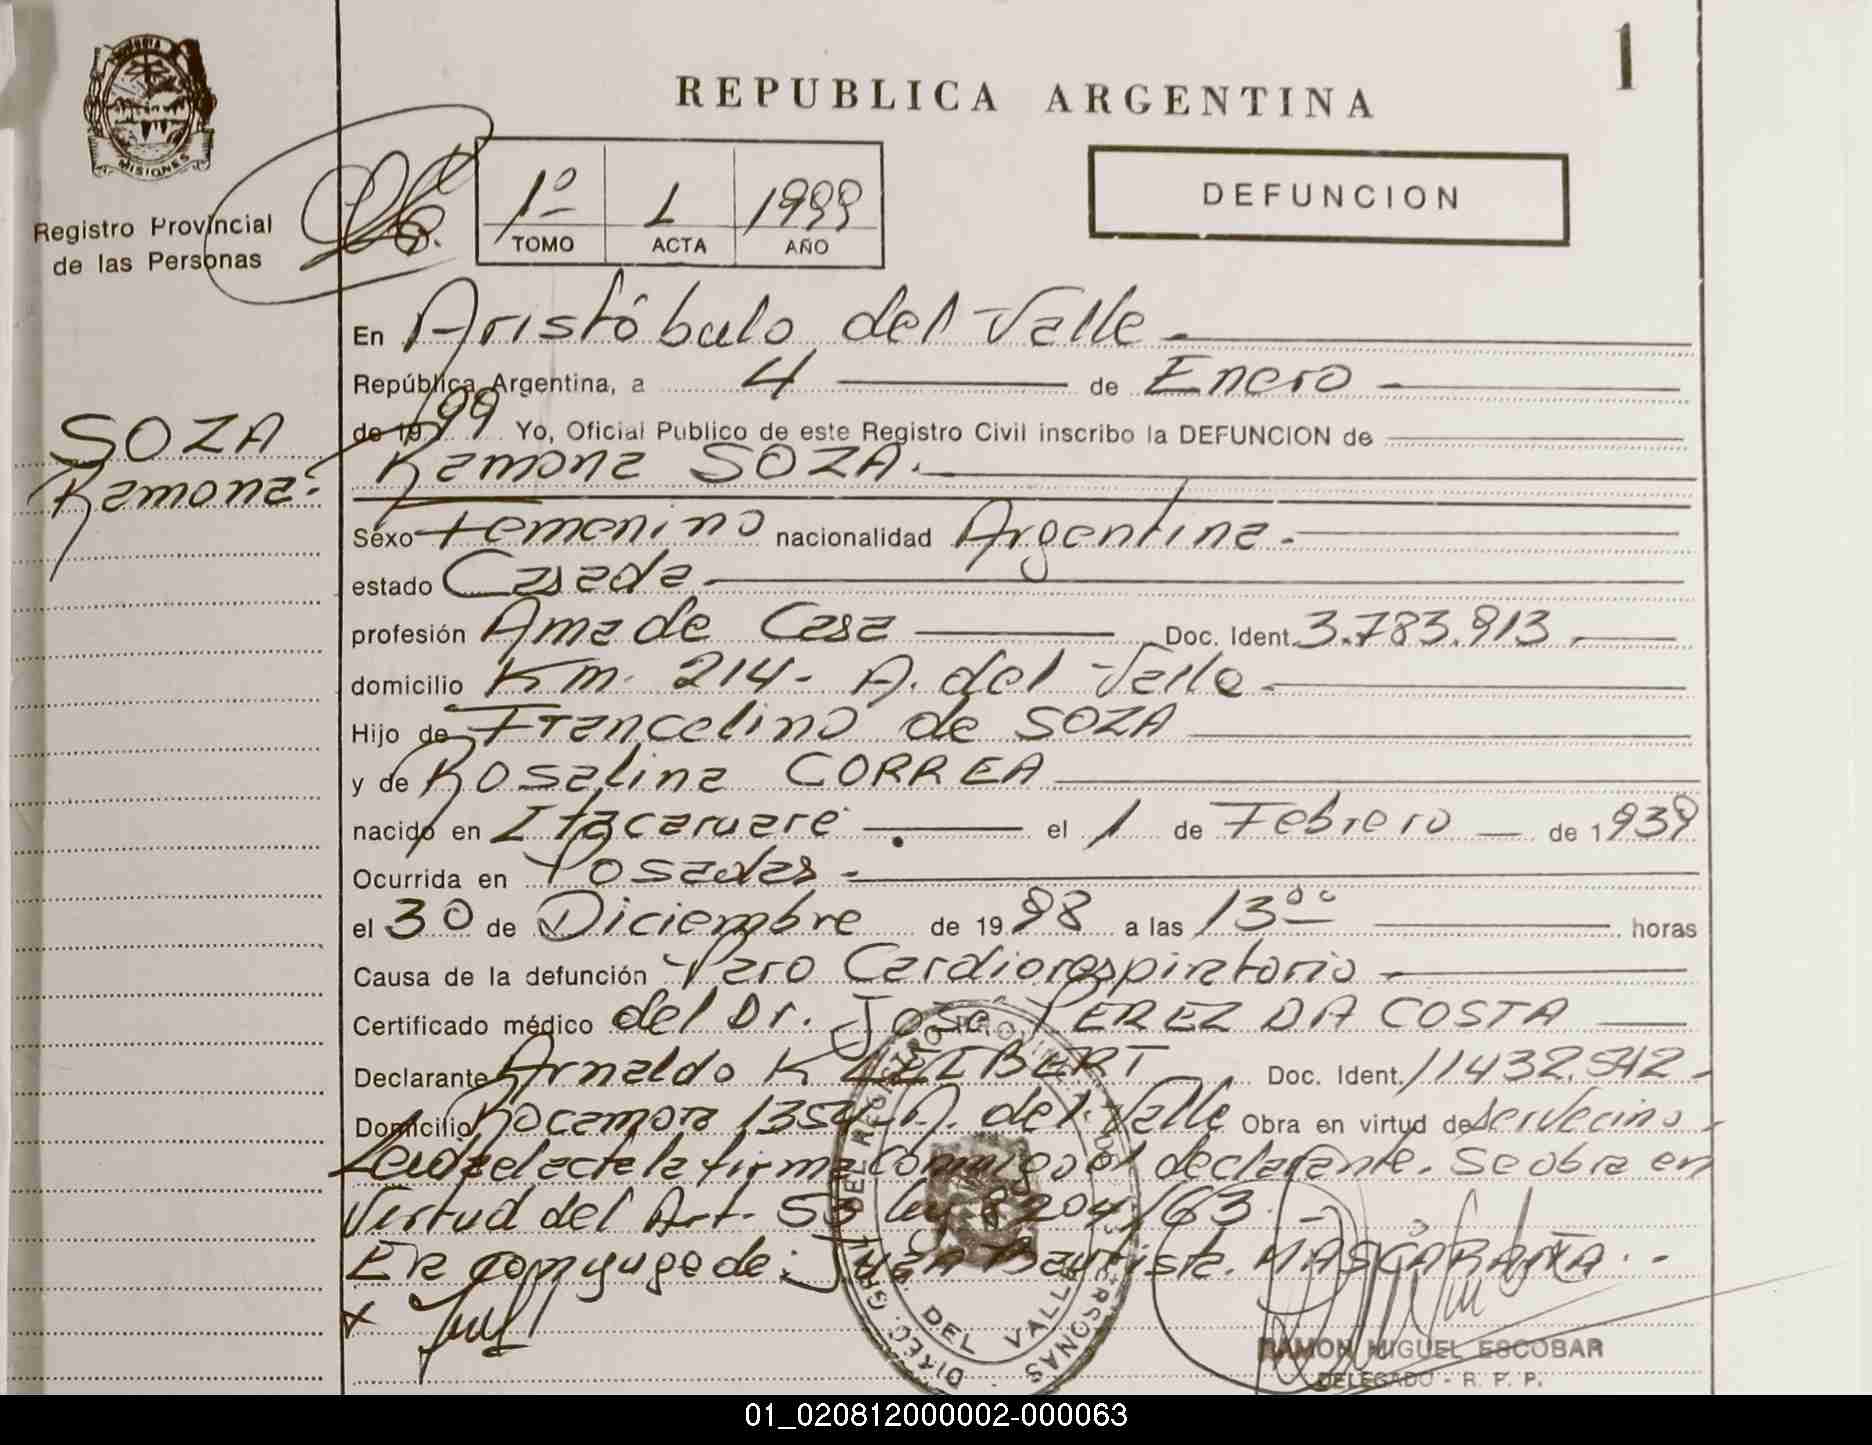 1
REPUBLICA ARGENTINA
MISIONES
Registro Provincial
de las Personas
1º 1 1999
TOMO ACTA AÑO
DEFUNCION
En Aristóbulo del Valle.
República Argentina, a 4 de Enero
de 1999 Yo, Oficial Publico de este Registro Civil inscribo la DEFUNCION de
SOZA
Ramona.
Ramona SOZA.
Sexo Femenino nacionalidad Argentina.
estado Casada
profesión Ama de Casa Doc. Ident. 3.783.913
domicilio Km. 214- A. del Valle
Hijo de Francelino de SOZA
y de Rosalina CORREA
nacido en Itacaruare el 1 de Febrero de 1939
Ocurrida en Posadas
el 30 de Diciembre de 1998 a las 13⁰⁰ horas
Causa de la defunción Paro Cardiorespiratorio
Certificado médico del Dr. José PEREZ DA COSTA
Declarante Arnaldo K LEIBERT Doc. Ident. 11432.542
Domicilio Rocamora 1354 A. del Valle Obra en virtud de ser vecino
Leida el acta la firma conmigo el declarante. Se obra en
virtud del Art. 53 ley 8204/63.
Era conyuge de: Juan Bautista MASCARAÑA.
RAMON MIGUEL ESCOBAR
DELEGADO - R. P. P.
DEL VALLE
01_020812000002-000063